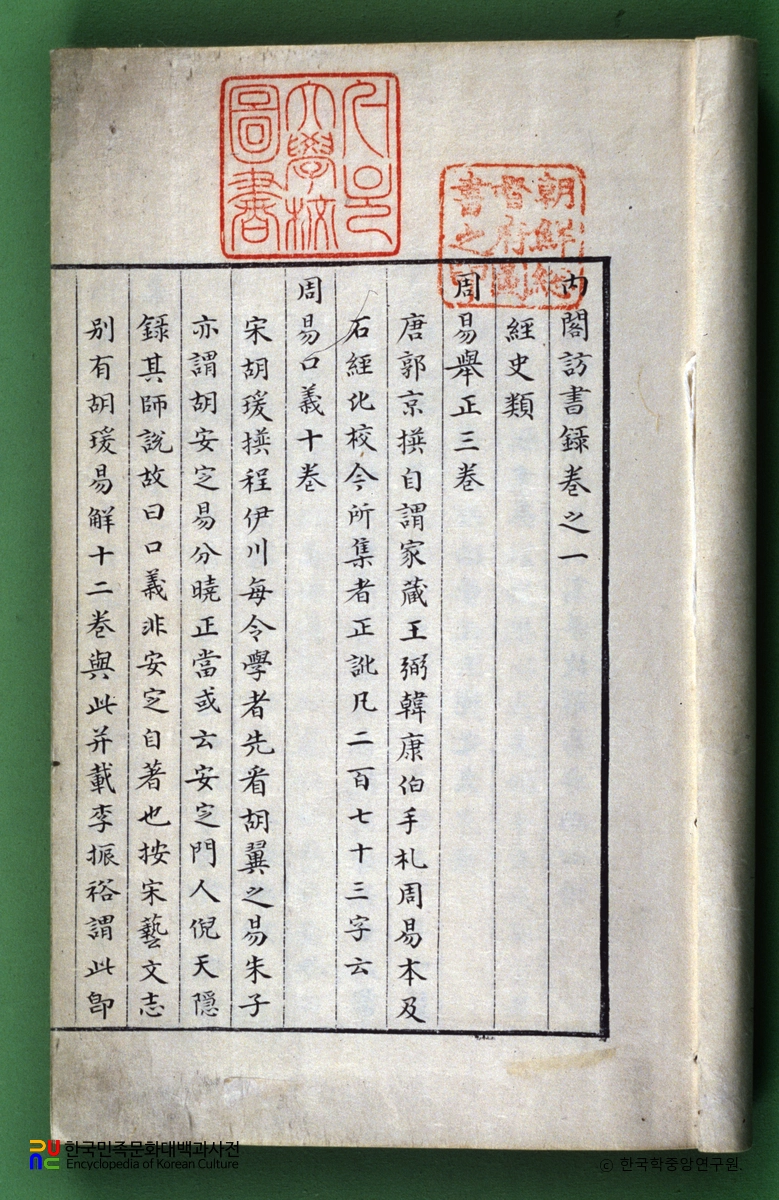 內閣訪書錄卷之一
經史類
周易舉正三卷
唐郭京撰自謂家藏王弼韓康伯手札周易本及
石經比校今所集者正訛凡二百七十三字云
周易口義十卷
宋胡瑗撰程伊川每令學者先看胡翼之易朱子
亦謂胡安定易分曉正當或云安定門人倪天隱
錄其師說故曰口義非安定自著也按宋藝文志
別有胡瑗易解十二卷與此并載李振裕謂此卽
朝鮮總
督府圖
書之印
大學校
圖書
한국민족문화대백과사전
Encyclopedia of Korean Culture
© 한국학중앙연구원.